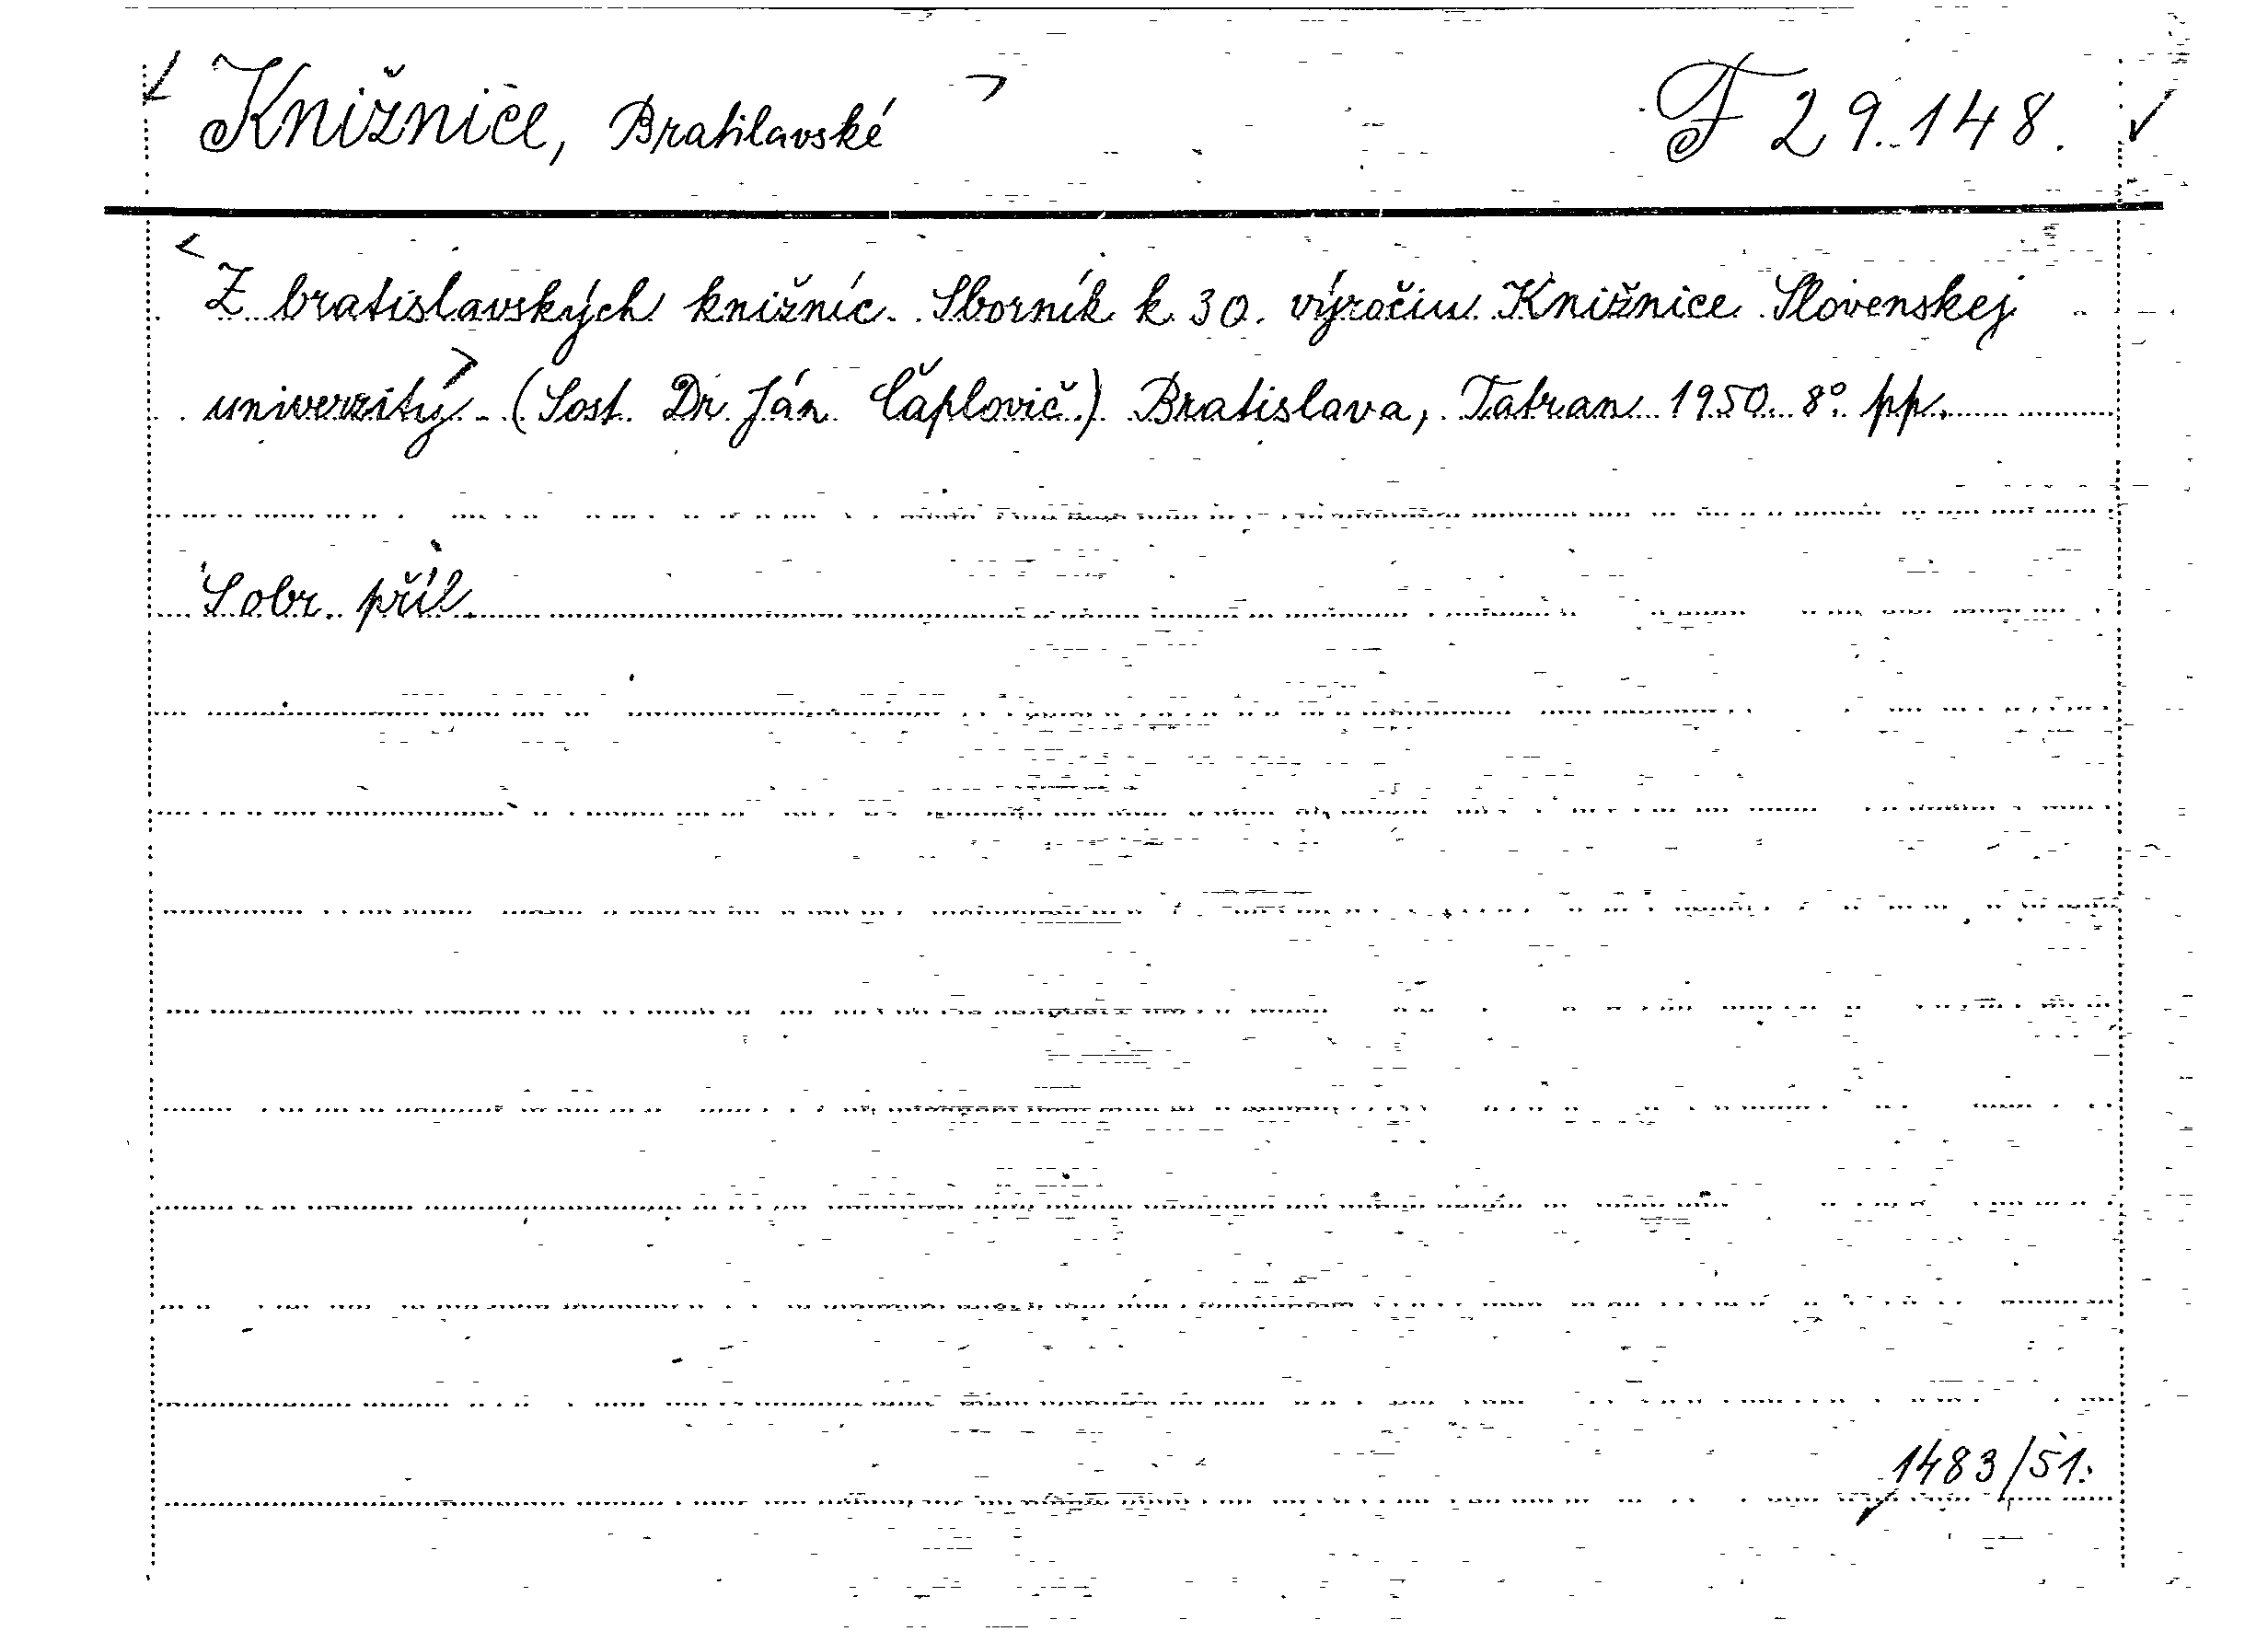 Knižnice, Bratilavské F 29.148.
Z bratislavských knižníc. Sborník k 30. výročiu Knižnice Slovenskej
univerzity. (Sost. Dr. Ján Čaplovič.) Bratislava, Tatran 1950. 8° pp.
S obr. příl.
1483/51.